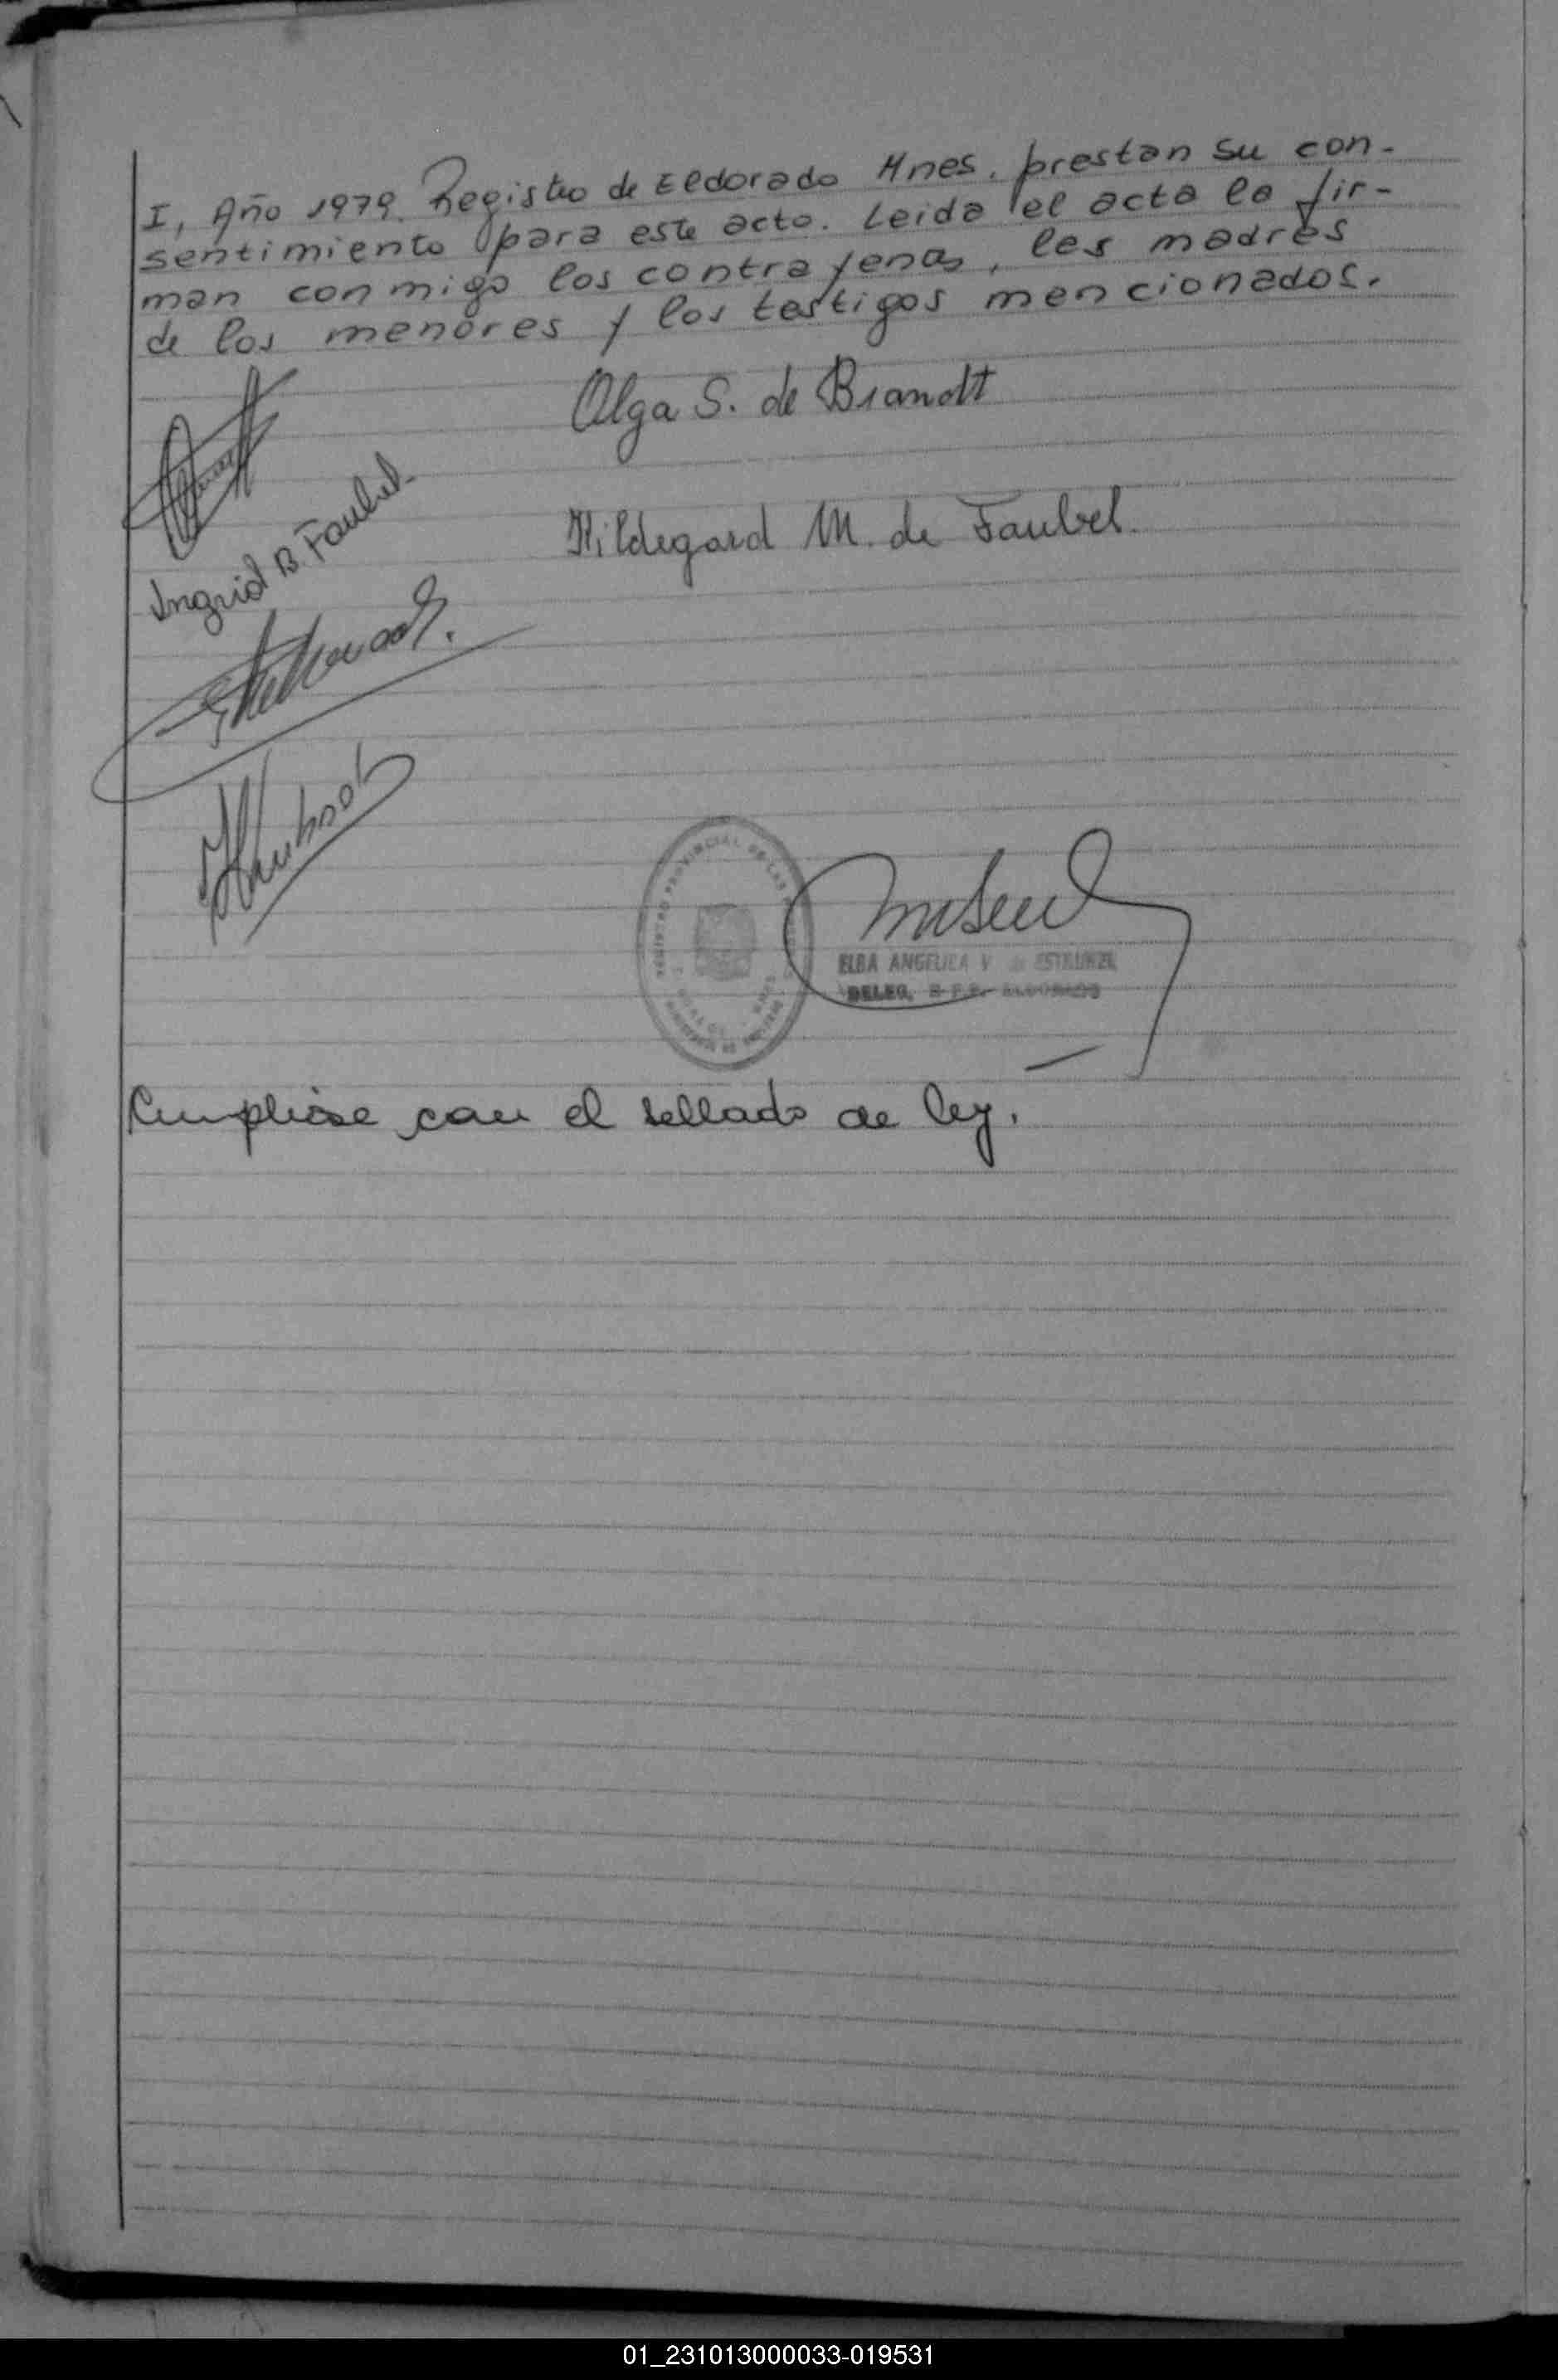 I, Año 1979. Registro de Eldorado Mnes. prestan su con-
sentimiento para este acto. Leida el acta la fir-
man conmigo los contrayenes, les madres
de los menores y los testigos mencionados.
Olga S. de Brandt
Ingrid B. Faubel
Hildegard M. de Faubel.
ELBA ANGELICA V de
DELEG. ELDORADO
Cumpliose con el sellado de ley.
01_231013000033-019531